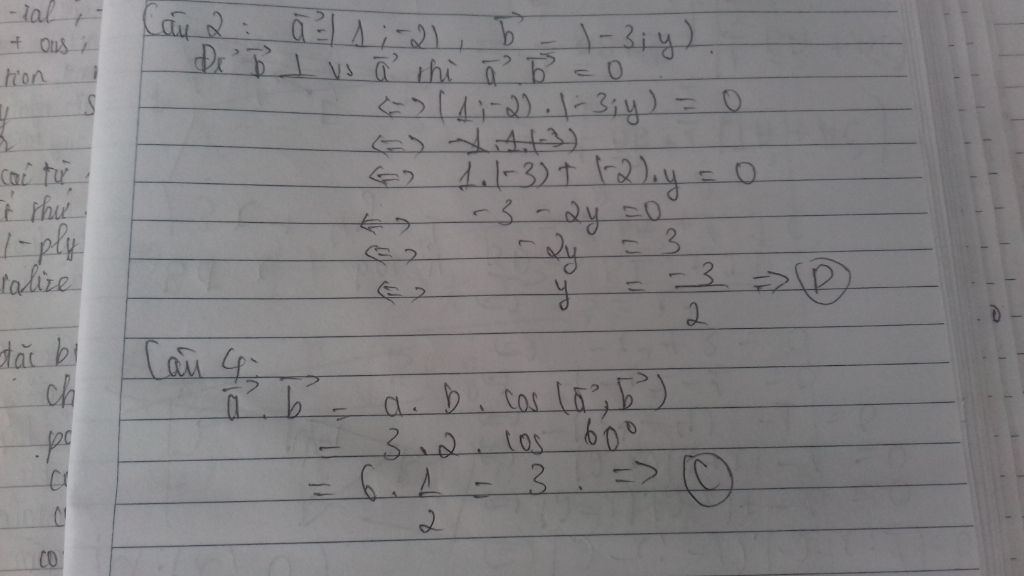 -ial, -
+ ous;
tion
y S
cai từ
ít thư
1-ply
ralize
đặc b
ch
co
Câu 2: a⃗=(1;-2), b⃗ = (-3;y).
Để b⃗ ⊥ vs a⃗ thì a⃗ b⃗ = 0
<=> (1;-2).(-3;y) = 0
<=> -1.1.(-3)
<=> 1.(-3)+(-2).y = 0
<=> -3 - 2y = 0
<=> -2y = 3
<=> y = -3/2 => D
Câu 4:
a⃗.b⃗ = a.b.cos(a⃗,b⃗)
= 3.2.cos 60°
= 6.1/2 = 3. => C